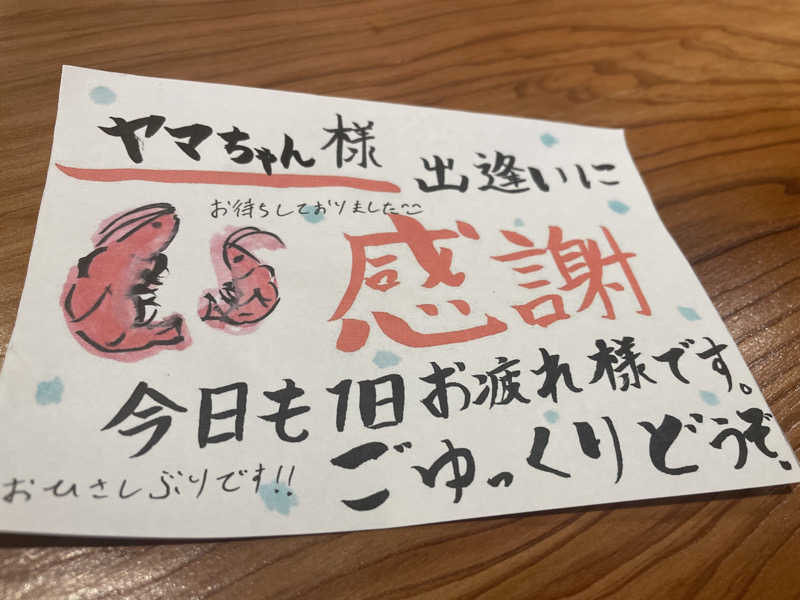 ヤマちゃん様
お待ちしておりました
出逢いに
感謝
今日も1日お疲れ様です。
ごゆっくりどうぞ.
おひさしぶりです!!